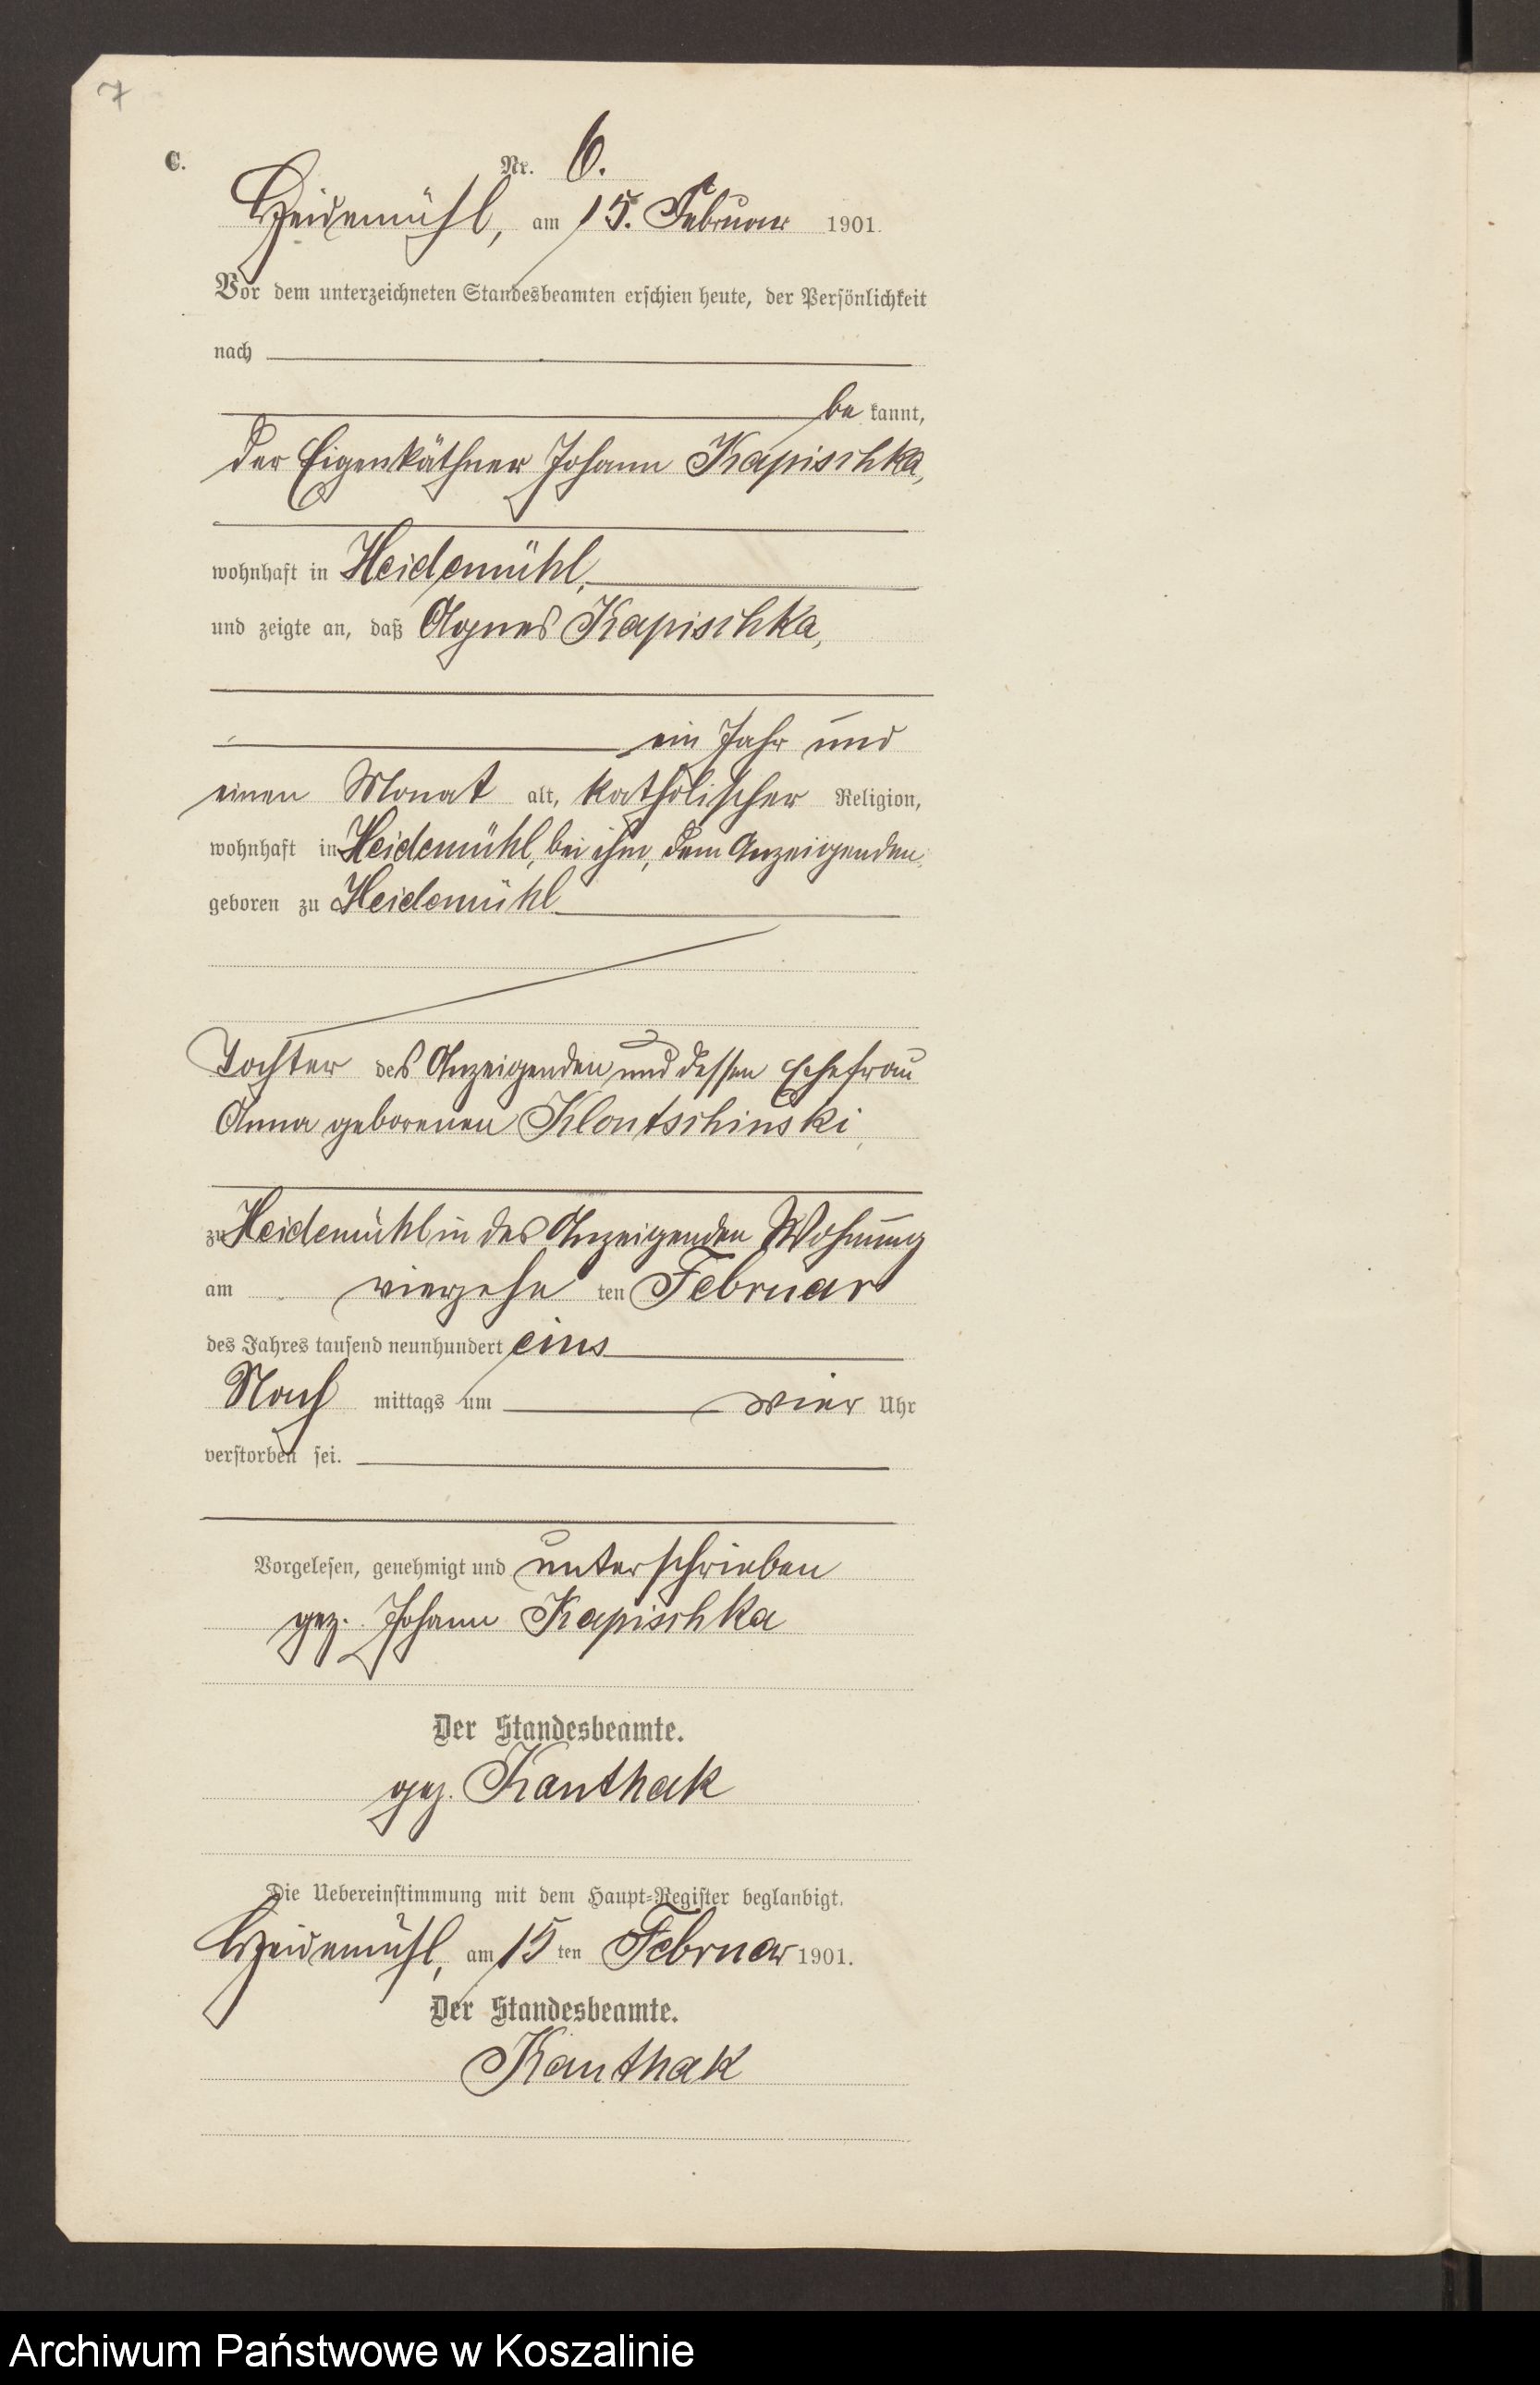 7
C.
Nr. 6.
Heidemühl, am 15. Februar 1901.
Vor dem unterzeichneten Standesbeamten erschien heute, der Persönlichkeit
nach
be kannt,
der Eigenkäthner Johann Kapischka,
wohnhaft in Heidemühl,
und zeigte an, daß Agnes Kapischka,
ein Jahr und
einen Monat alt, katholischer Religion,
wohnhaft in Heidemühl, bei ihm, dem Anzeigenden,
geboren zu Heidemühl
Tochter des Anzeigenden und dessen Ehefrau
Anna geborenen Klontschinski,
zu Heidemühl in des Anzeigenden Wohnung
am vierzehn ten Februar
des Jahres tausend neunhundert eins
Nach mittags um vier Uhr
verstorben sei.
Vorgelesen, genehmigt und unterschrieben
gez. Johann Kapischka
Der Standesbeamte.
gez. Kanthak
Die Uebereinstimmung mit dem Haupt-Register beglaubigt.
Heidemühl, am 15 ten Februar 1901.
Der Standesbeamte.
Kanthak
Archiwum Państwowe w Koszalinie